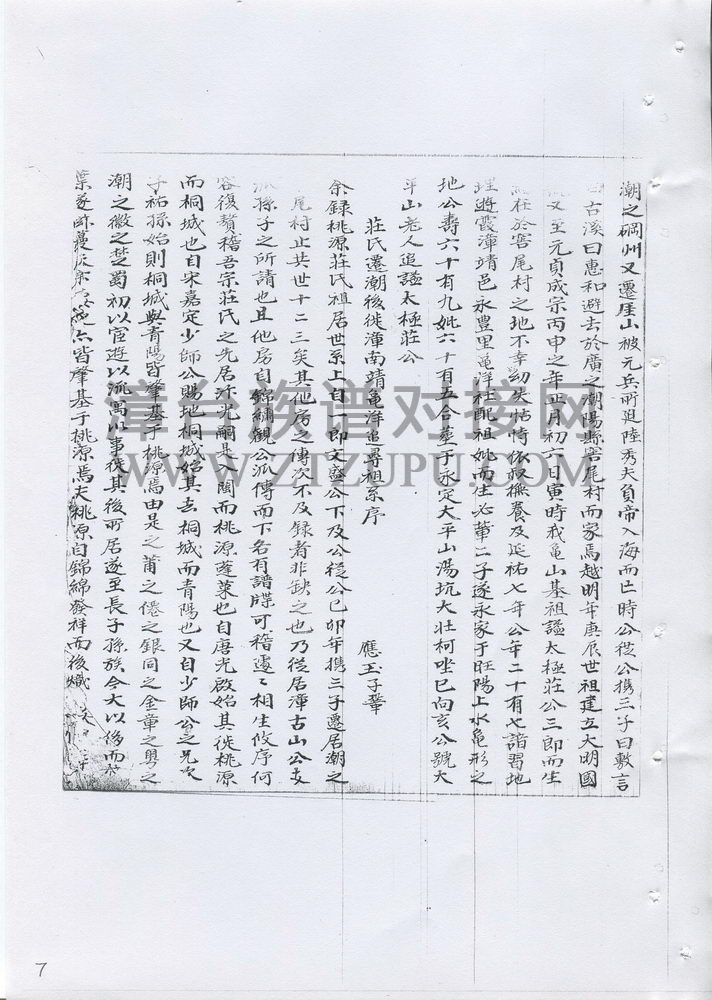 潮之碙州又遷厓山被元兵所迫陸秀夫負帝入海而亡時公從公携三子曰敷言
曰古溪曰惠和避去於廣之潮陽縣窖尾村而家焉越明年庚辰世祖建立大明國
又至元貞成宗丙申之年正月初六日寅時我龜山基祖諡太極莊公三郎而生
在於窖尾村之地不幸幼失怙恃依叔撫養及延祐七年公年二十有七諳習地
理遊霞漳靖邑永豊里龜洋社配祖妣而生必華二子遂永家于旺陽上水龜形之
地公壽六十有九妣六十有五合塟于永定大平山湯坑大壯柯坐巳向亥公號大
平山老人追諡太極莊公
莊氏遷潮後徙漳南靖龜洋邑尋祖系序
應玉子輦
余録桃源莊氏祖居世系上自一郎文盛公下及公從公已卯年携三子遷居潮之
尾村止共世十二三矣其他房之傳次不及録者非缺之也乃從居漳古山公支
派孫子之所請也且他房自錦綉觀公派傳而下各有譜牒可稽處々相生攸序何
容復贅稽吾宗莊氏之先居汴光嗣是入閩而桃源蓬莱也自唐光啟始其徙桃源
而桐城也自宋嘉定少師公賜地桐城始其去桐城而青陽也又自少師公之兄次
子祐孫始則桐城與青陽皆肇基于桃源焉由是之莆之僊之銀同之金章之粤之
潮之徽之楚蜀初以宦遊以流寓以事從其後所居遂至長子孫族今大以侈而
葉遂 皆肇基于桃源焉夫桃源自錦綿發祥而後熾
漳台族谱对接网
WWW.ZTZUPU.COM
7